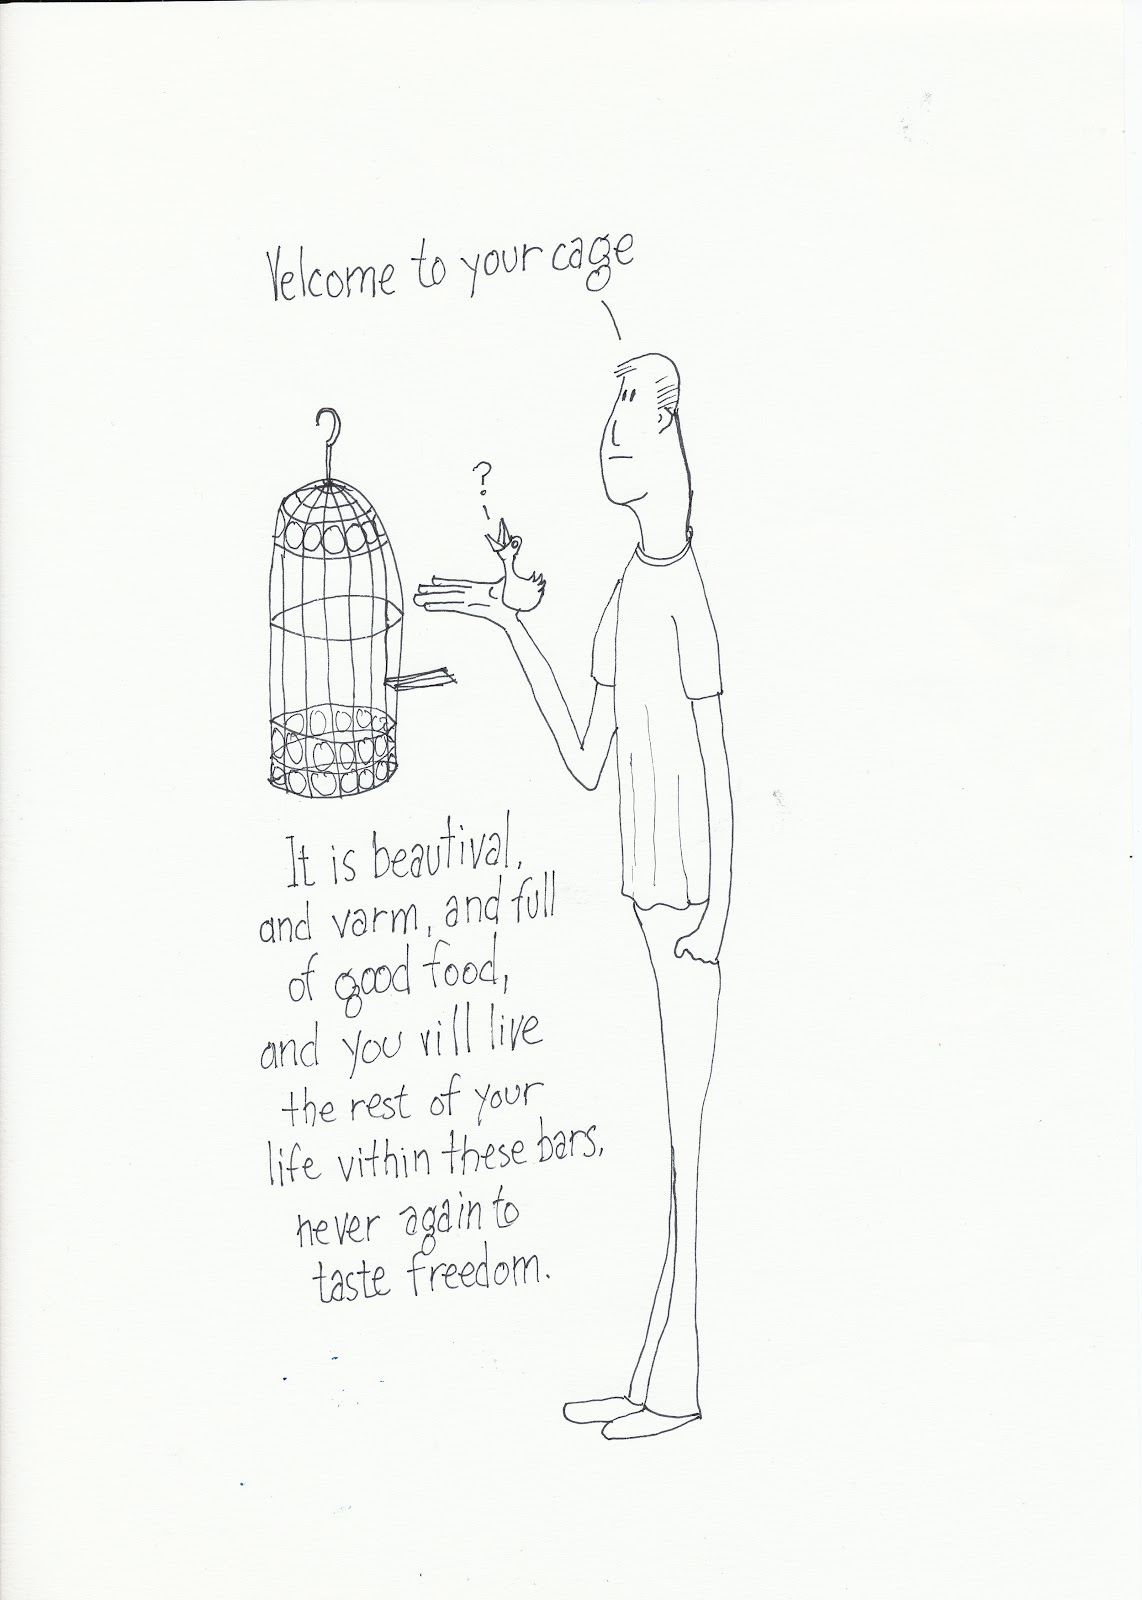 Velcome to your cage
?
It is beautival,
and varm, and full
of good food,
and you vill live
the rest of your
life vithin these bars,
never again to
taste freedom.